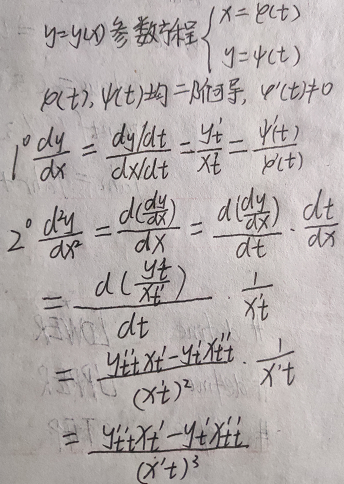 y=y(x)参数方程{x=φ(t)
y=ψ(t)
φ(t),ψ(t)均二阶可导, φ'(t)≠0
1° dy/dx = (dy/dt)/(dx/dt) = y't/x't = ψ'(t)/φ'(t)
2° d²y/dx² = d(dy/dx)/dx = d(dy/dx)/dt · dt/dx
= d(y't/x't)/dt · 1/x't
= (y''tt x't - y't x''tt)/(x't)² · 1/x't
= (y''tt x't - y't x''tt)/(x't)³